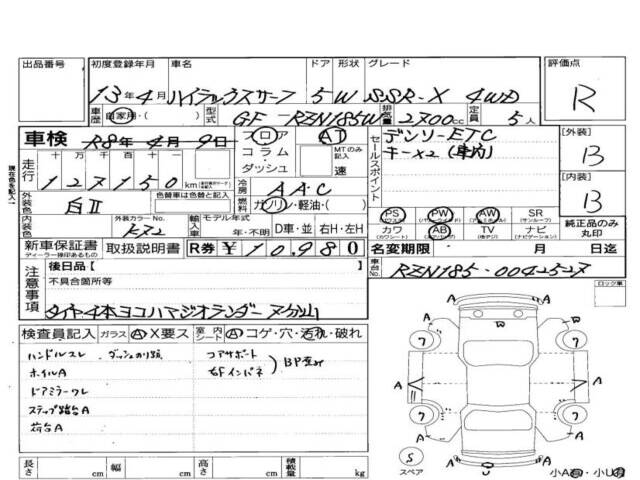 出品番号
初度登録年月 車名 ドア 形状 グレード
評価点
13年4月 ハイラックスサーフ 5 W SSR-X 4WD
R
車歴 自家用・( ) 型式 GF- RZN185W 排気量 2700cc 定員 5人
車検 R8年4月9日
フロア コラム ダッシュ
AT
MTのみ記入 速
セールスポイント
デンソーETC
キー×2 (車内)
[外装]
B
[内装]
B
現在色を記入
走行 十 万 千 百 十 一
127150 km
冷房 AAC
外装色 白II 色替車は色替と記入
燃料 ガソリン・軽油・( )
内装色 外装カラーNo. K72
輸入車 モデル年式 年・不明 D車・並 右H・左H
PS PW AW SR (サンルーフ)
カワ (カワシート) AB TV ナビ (ナビゲーション)
純正品のみ丸印
新車保証書 ディーラー様印あるもの 取扱説明書 R券 ¥10,980
名変期限 月 日迄
車台No. RZN185-0042527
注意事項
後日品【 】
不具合箇所等
タイヤ4本ヨコハマジオランダー 7分山
ロック車
検査員記入 ガラス A X要ス 室内シート A コゲ・穴・汚れ・破れ
ハンドルスレ ダッシュのり跡 コアサポート
ホイルA 右Fインパネ
BP歪み
ドアミラーワレ
ステップ踏台A
荷台A
長さ cm 幅 cm 高さ cm 積載量 kg
A A A A A A
ワ ワ ワ ワ
W
S
スペア
A U A
小A・小U